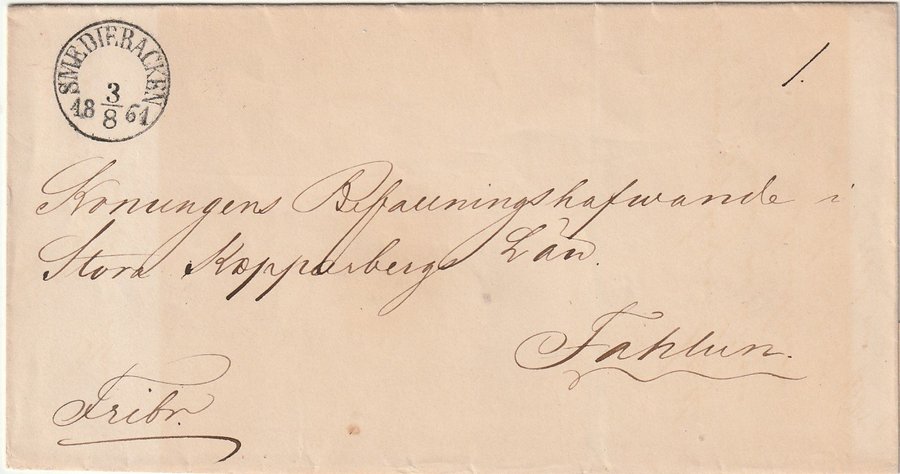 SMEDJEBACKEN
3
18 61
8
1.
Konungens Befallningshafwande i
Stora Kopparbergs Län.
Fahlun.
Fribr.